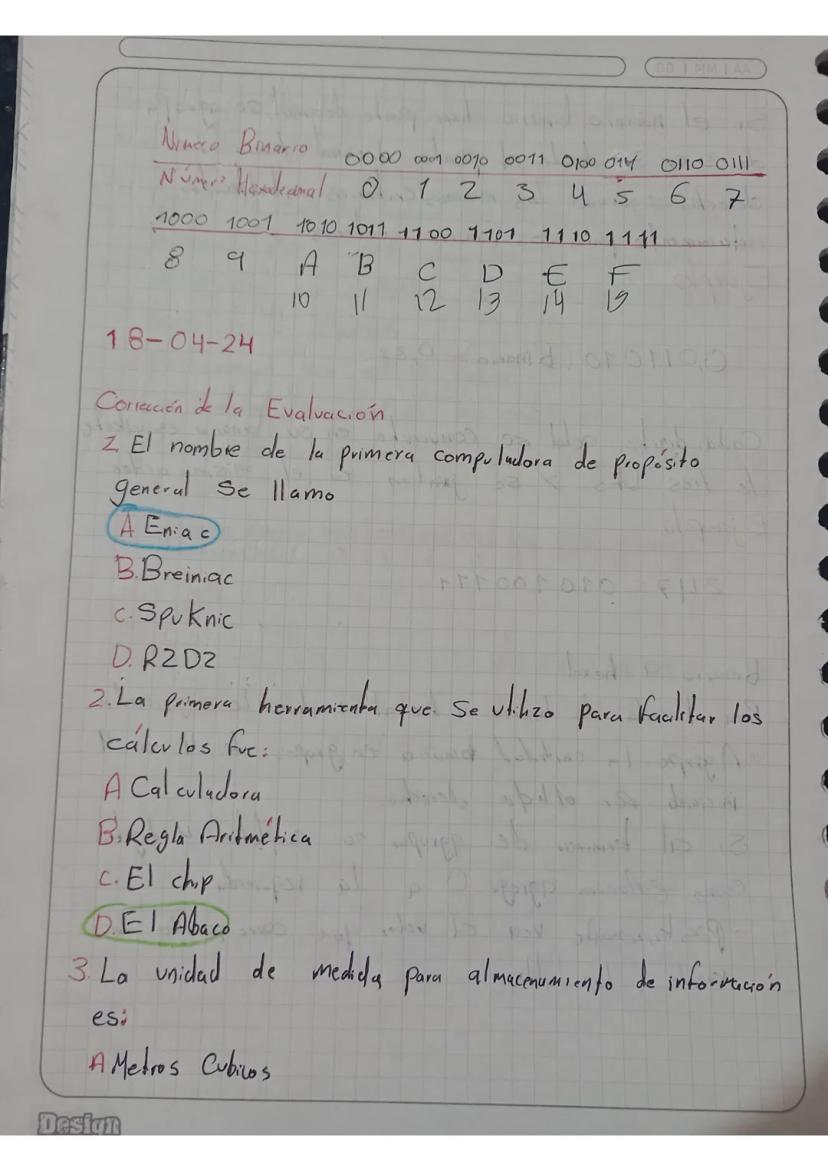 DD | MM | AA
Número Binario 0000 0001 0010 0011 0100 0101 0110 0111
Número Hexadecimal 0 1 2 3 4 5 6 7
1000 1001 1010 1011 1100 1101 1110 1111
8 9 A B C D E F
10 11 12 13 14 15
18-04-24
Corrección de la Evaluación
1 El nombre de la primera computadora de propósito
general se llamo
A Eniac
B. Breiniac
C. Spuknic
D. R2D2
2. La primera herramienta que se utilizo para facilitar los
cálculos fue:
A Calculadora
B. Regla Aritmética
C. El chip
D. El Abaco
3. La unidad de medida para almacenamiento de información
es:
A Metros Cubicos
Design